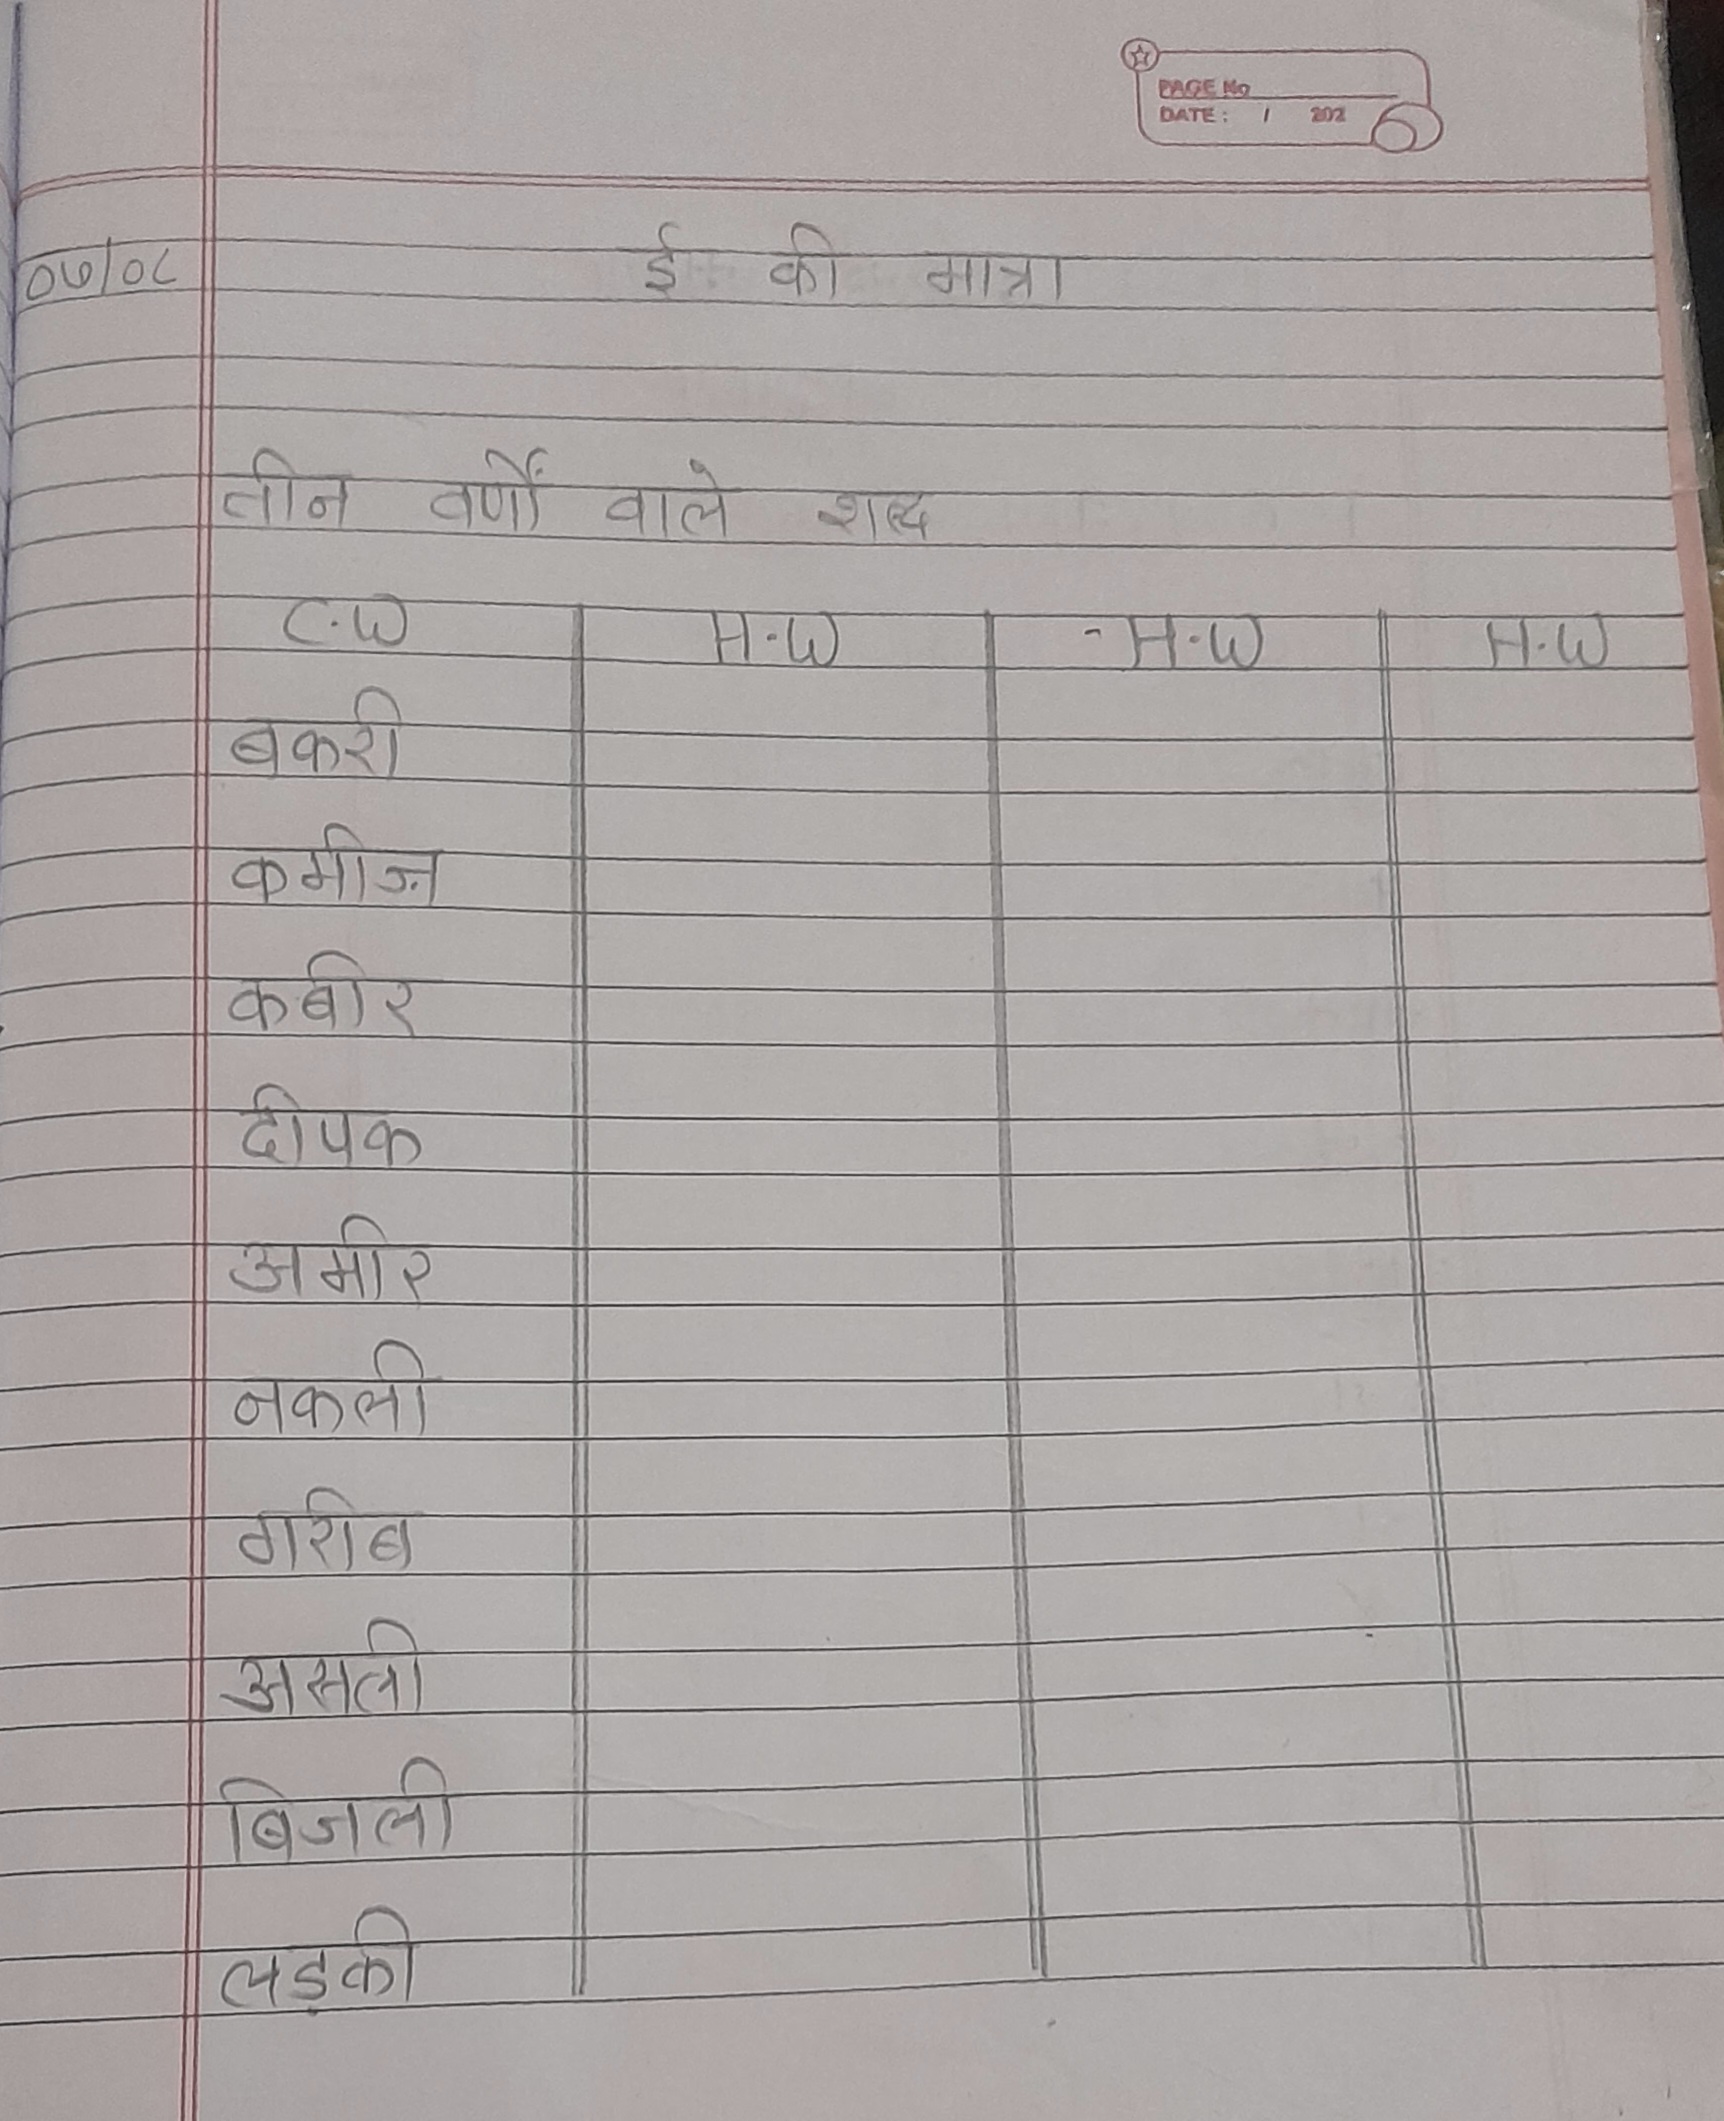 PAGE No
DATE: / 202
०७/०८ ई की मात्रा
तीन वर्णों वाले शब्द
C.W H.W - H.W H.W
बकरी
कमीज़
कबीर
दीपक
अमीर
नकली
गरीब
असली
बिजली
लड़की